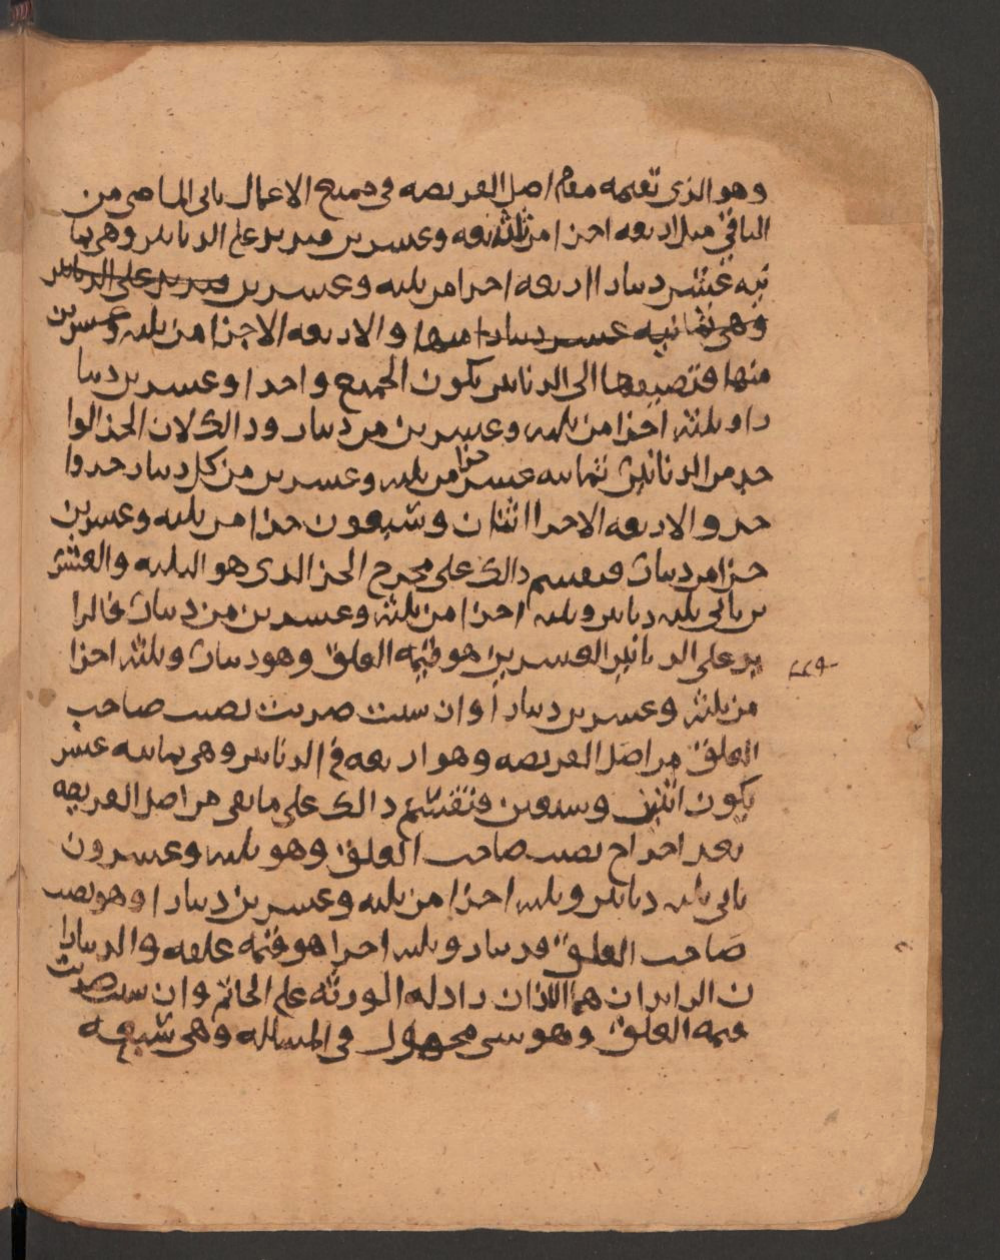 وهو الذي تقيمه مقام اصل الفريضه في جميع الاعمال ياتي الماضي من
الباقي مثل اربعه اجزا من ثلثه وعشرين فيزيد على الدنانير وهي ثما
نيه عشر دينار اربعه اجزا من ثلثه وعشرين فيزيد على الدنانير
وهي ثمانيه عشر دينارا منها والاربعه الاجزا من ثلثه وعشرين
منها فتضيفها الى الدنانير يكون الجميع واحدا وعشرين دينا
را وثلثه اجزا من ثلثه وعشرين من دينار وذالك لان الجز الوا
حد من الدنانير ثمانيه عشر جزا من ثلثه وعشرين من كل دينار جزوا
حد والاربعه الاجزا اثنان وسبعون جزا من ثلثه وعشرين
جزا من دينار فنقسم ذالك على مخرج الجز الذي هو الثلثه والعشر
ين ياتي ثلثه دنانير وثلثه اجزا من ثلثه وعشرين من دينار فالزا
يد على الدنانير العشرين هو قيمه العلق وهو دينار وثلثه اجزا
من ثلثه وعشرين دينارا وان شيت ضربت نصيب صاحب
العلق من اصل الفريضه وهو اربعه في الدنانير وهي ثمانيه عشر
يكون اثنين وسبعين فتقسم ذالك على ما بقي من اصل الفريضه
بعد اخراج نصيب صاحب العلق وهو ثلثه وعشرون
ياتي ثلثه دنانير وثلثه اجزا من ثلثه وعشرين دينارا وهو نصيب
صاحب العلق فدينار وثلثه اجزا هو قيمه علقه والدينارا
ن الزايدان هما اللذان زاد له المورثه على الخاتم وان شيت ضربت
قيمه العلق وهو شي مجهول في المساله وهي سبعه